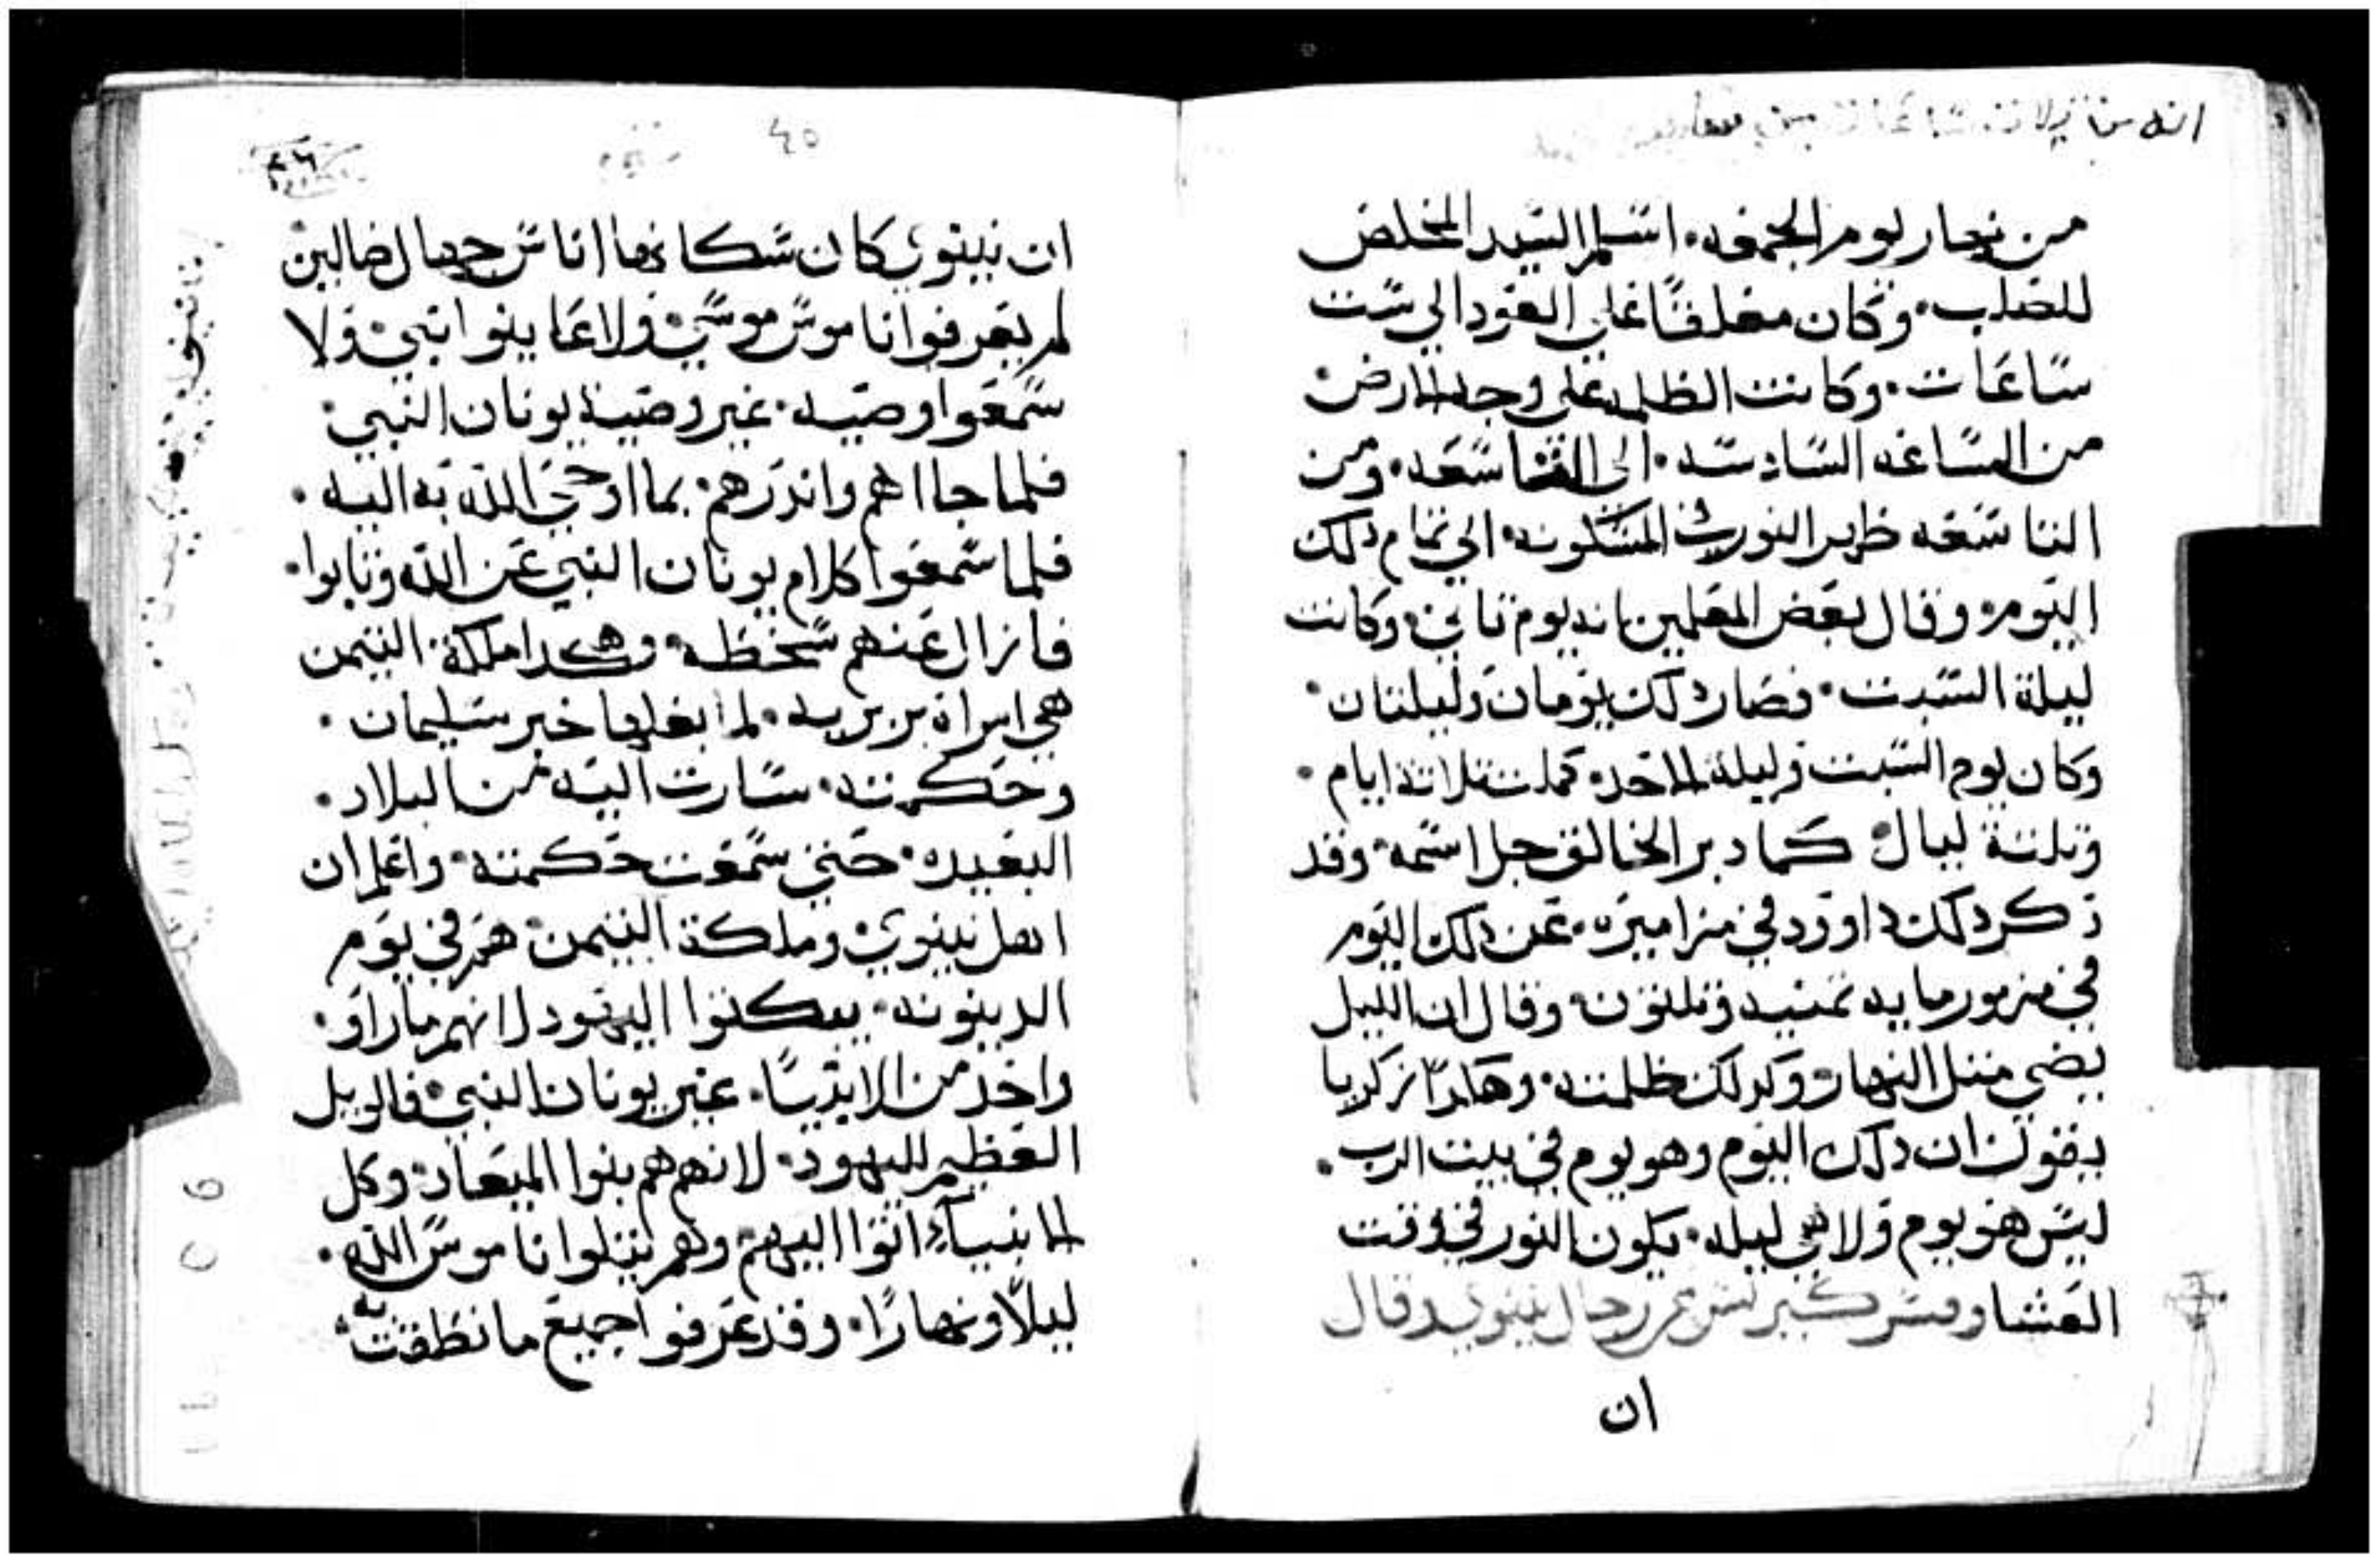 من نهار يوم الجمعه. اسلم السيد المخلص
للصلب. وكان معلقًا علي العود الي ست
ساعات. وكانت الظلمه علي وجه الارض.
من الساعه السادسه. الي التاسعه. ومن
التاسعه ظهر النور في المسكونه. الي تمام دلك
اليوم. وقال بعض المعلمين انه يوم تاني. وكانت
ليلة السبت. فصار دلك يومان وليلتان.
وكان يوم السبت وليلة الاحد. كملت تلاتة ايام.
وتلتة ليال. كما دبر الخالق جل اسمه. وقد
دكر دلك داوود في مزاميره. عن دلك اليوم
في مزمور مايه تمنيه وتلتون. وقال ان الليل
يضي متل النهار. وكدلك ظلمته. وهكدا زكريا
يقول ان دلك اليوم وهو يوم في بيت الرب.
ليس هو يوم ولا هي ليله. يكون النور في وقت
العشا وفسر كبير لنس عن رجال نينوي وقال
ان
٤٥
ان نينوي كان سكانها اناس جهال ضالين
لم يعرفوا ناموس موسي. ولا عاينوا نبي. ولا
سمعوا وصيه. غير وصية يونان النبي.
فلما جااهم واندرهم. بما اوحي الله به اليه.
فلما سمعوا كلام يونان النبي عن الله وتابوا.
فازال عنهم سخطه. وهكدا ملكة التيمن
هي امراة بربريه. لما بغلها خبر سليمان.
وحكمته. سارت اليه من البلاد.
البعيده. حتي سمعت حكمته. واعلم ان
اهل نينوي. وملكة التيمن. هم في يوم
الدينونه. يبكتوا اليهود لانهم ماراو.
واحد من الانبيا. غير يونان النبي. فالويل
العظيم لليهود. لانهم هم بنوا الميعاد. وكل
الانبياء اتوا اليهم. وهم يتلوا ناموس الله.
ليلًا ونهارًا. وقد عرفوا جميع ما نطقت به